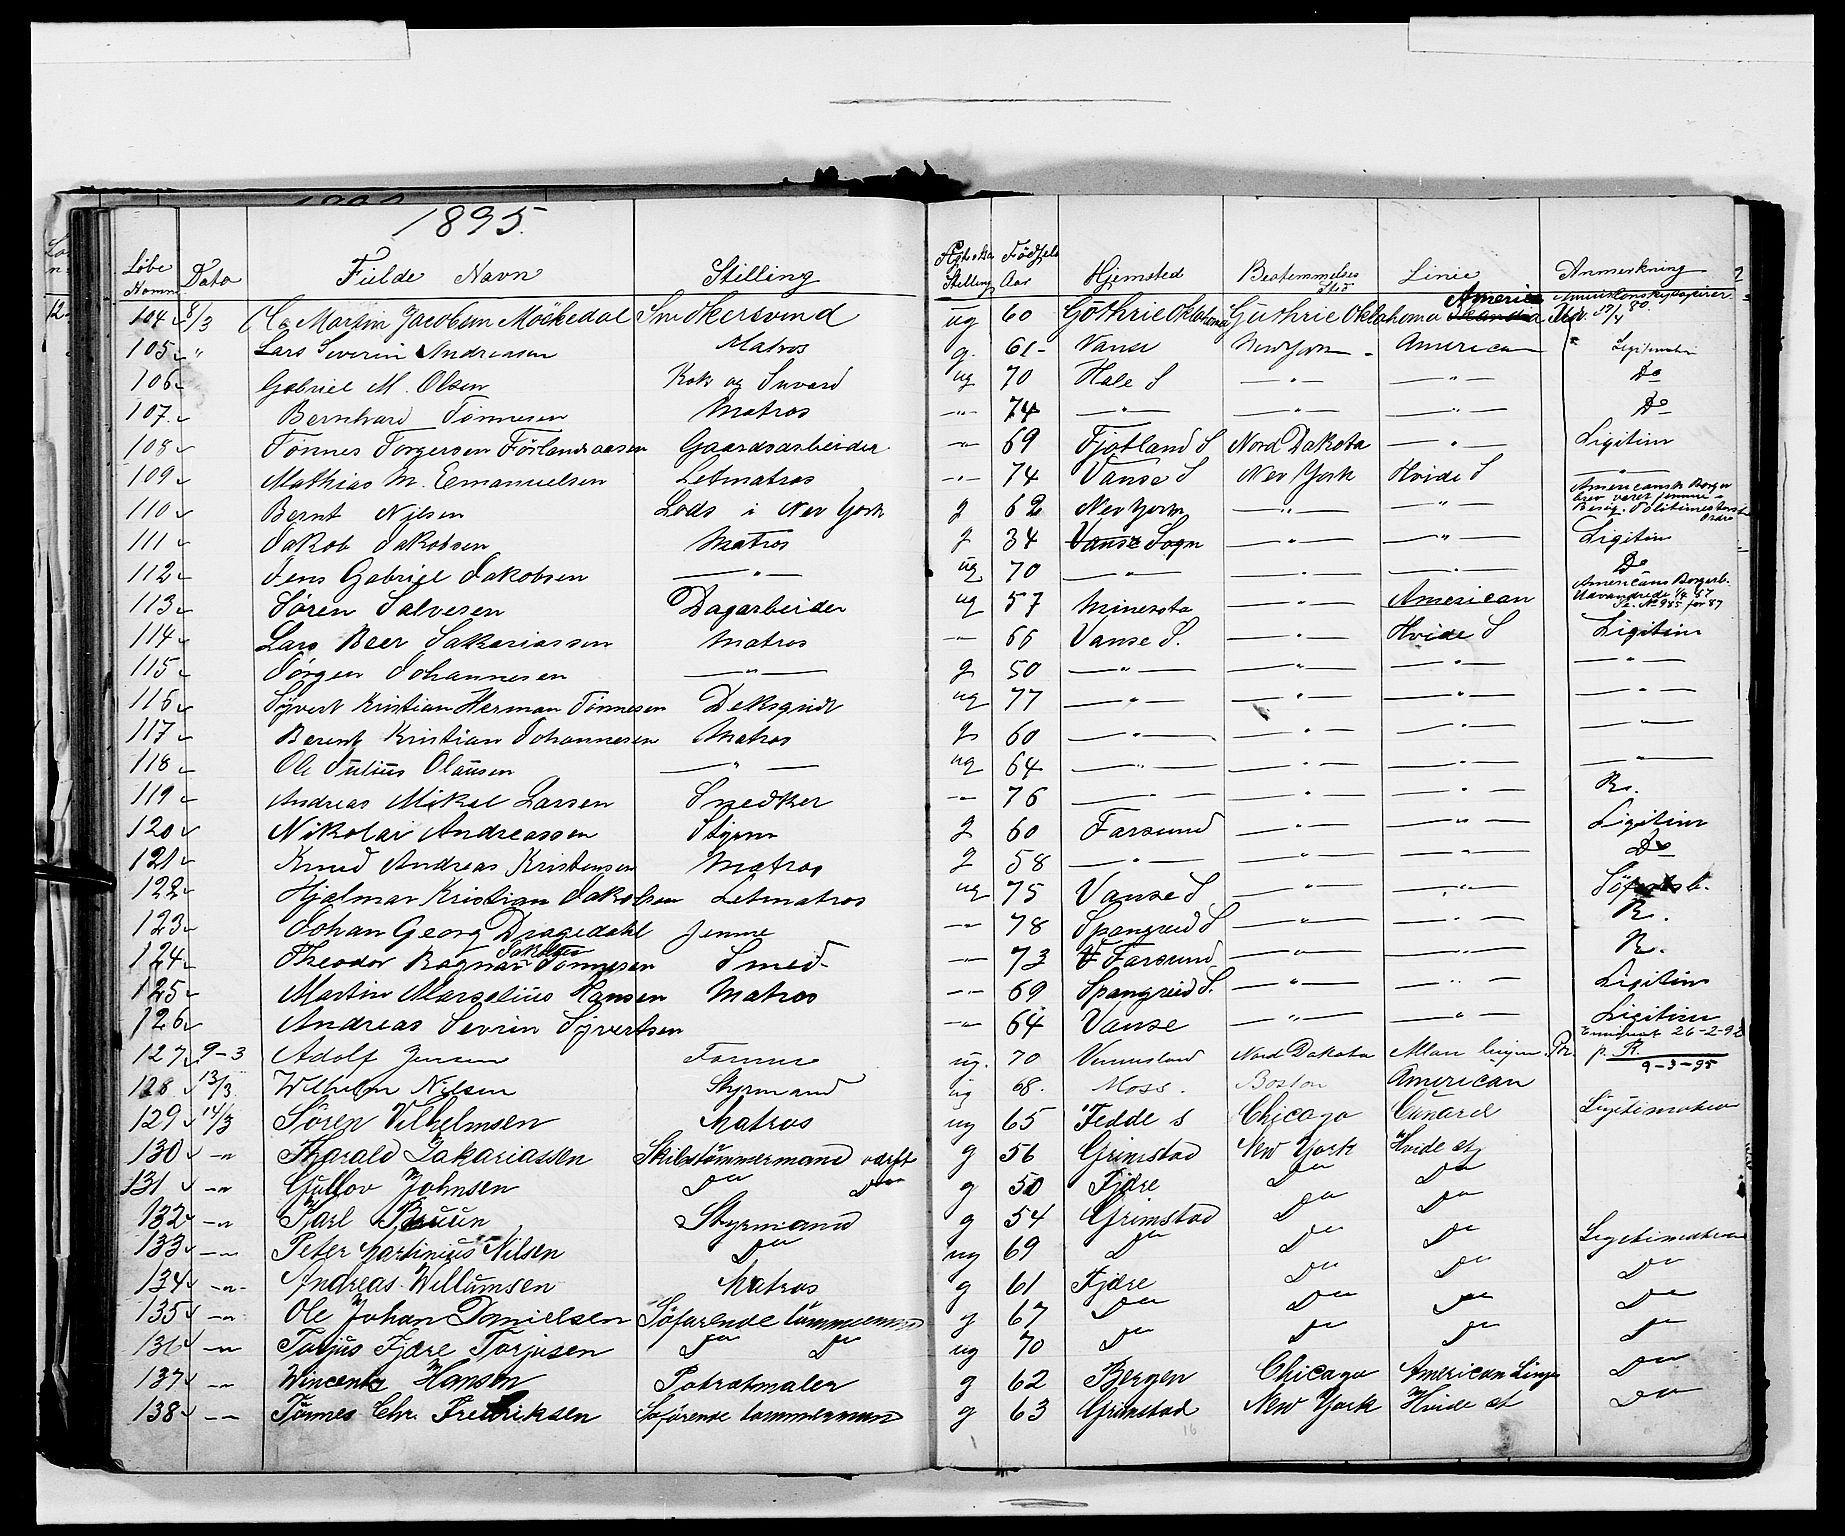 1895.
Löbe Numm Dato Fulde Navn Stilling Ægteska Stilling Födsels Aar Hjemsted Bestemmelses Sted Linie Anmerkning
104 8/3 Martin Jacobsen Möskedal Snedkersvend ug 60 Guthrie Oklahoma Guthrie Oklahoma America
105 " Lars Severin Andreasen Matros g. 61 Vanse New York American Legitimation
106 Gabriel M. Olsen Kok og Stuvard ug 70 Hæle S —"— —"— Do
107 Bernhard Tönnesen Matros —"— 74 —"— —"— —"— Do
108 Tönnes Torgersen Förlandsaasen Gaardsarbeider —"— 69 Fjotland S Nord Dakota —"— Ligitim
109 Mathias M. Emanuelsen Letmatros —"— 74 Vanse S Nev York Hvide S —"—
110 Bernt Nilsen Lods i Nev York g 62 Nev York —"— —"— Americansk Borger brev været hjemme Besig. Politimesterst Ordre
111 Jakob Jakobsen Matros g 34 Vanse Sogn —"— —"— Ligitim
112 Jens Gabriel Jakobsen —"— ug 70 —"— —"— —"— Do
113 Sören Salvesen Dagarbeider ug 57 Minesota —"— American Americans Borgerb. Udvandrede 1/4 87 No 985 for 87
114 Lars Beer Sakariassen Matros —"— 66 Vanse S. —"— Hvide S Ligitim
115 Jörgen Johannesen —"— g 50 —"— —"— —"— —"—
116 Syvert Kristian Herman Tönnesen Deksgudt ug 77 —"— —"— —"— —"—
117 Berent Kristian Johannesen Matros g 60 —"— —"— —"— —"—
118 Ole Julius Olausen —"— ug 64 —"— —"— —"— —"—
119 Andreas Mikal Larsen Snedker —"— 76 —"— —"— —"— R.
120 Nikolai Andreassen Styrm g 60 Farsund —"— —"— Ligitim
121 Knud Andreas Kristensen Matros g 58 —"— —"— —"— Do
122 Hjalmar Kristian Jakobsen Letmatros ug 75 Vanse S —"— —"—
123 Johan Georg Dragedahl Jemme —"— 78 Spangreid S —"— —"— R.
124 Theodor Ragnar Jakobus Tönnesen Smed —"— 73 Farsund —"— —"— R.
125 Martin Marselius Hansen Matros —"— 69 Spangreid S. —"— —"— Ligitim
126 Andreas Sevrin Syvertsen —"— 64 Vanse —"— —"— Ligitim
127 9-3 Adolf Jensen Tömmer ug. 70 Vennesland Nord Dakota Allan linjen Emigreret 26-2-92 p. R. 9-3-95
128 13/3 Wilhelm Nilsen Styrmand ug 68. Moss. Boston American
129 14/3 Sören Vilhelmsen Matros ug 65 Fedde s Chicago Cunard Legitimation
130 —"— Tharald Zakariassen Skibstömmermand værft g 56 Grimstad New York Hvide st
131 —"— Gullov Johnsen Do Do g 50 Fjære Do Do
132 —"— Karl Bruun Styrmand g 54 Grimstad Do Do
133 —"— Peter Martinius Nilsen Do ug 69 Do Do Do Legitimation
134 —"— Andreas Willumsen Matros g 61 Fjære Do Do Do
135 —"— Ole Johan Danielsen Söfarende tömmerman g 67 Do Do Do Do
136 —"— Torjus Fjære Torjusen Do Do ug 70 Do Do Do Do
137 —"— Wincents Hansen Potrætmaler g 62 Bergen Chicago American Linje Do
138 —"— Tönnes Chr. Fredriksen Söfarende tömmerman g 63 Grimstad New York Hvide st Do
16